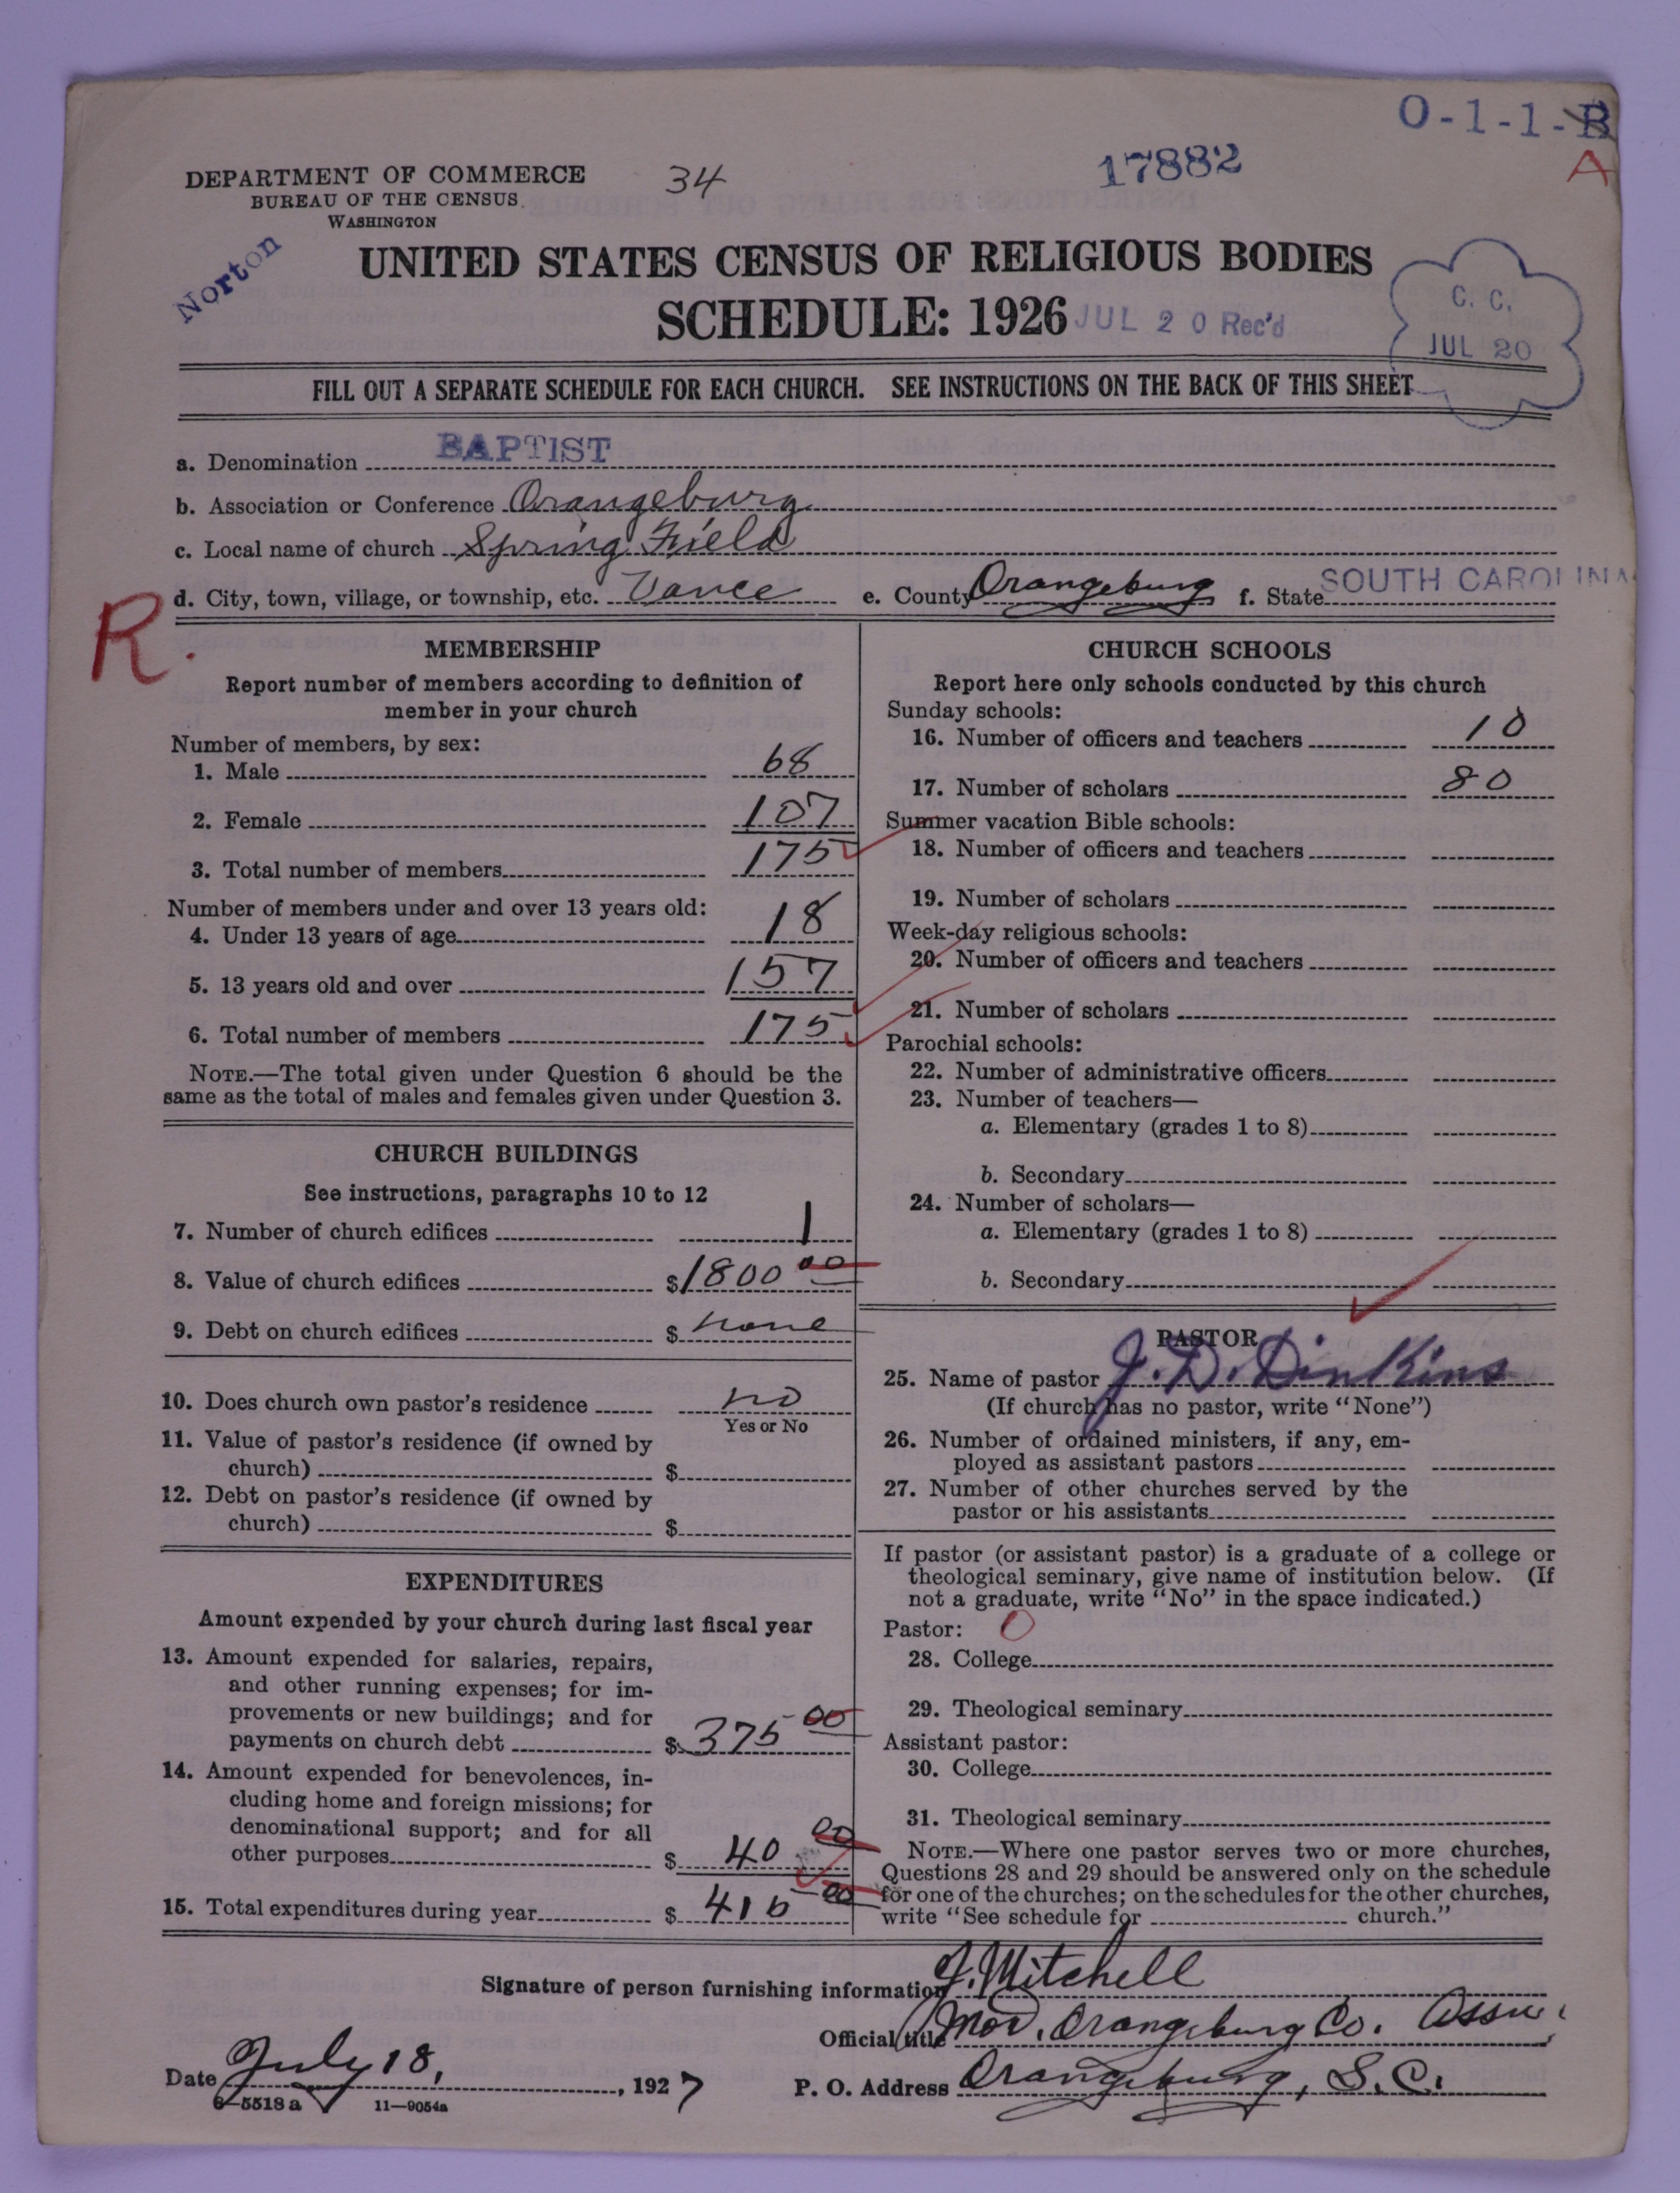 O-1-1-B
A
DEPARTMENT OF COMMERCE
BUREAU OF THE CENSUS
WASHINGTON
34
17882
Norton
UNITED STATES CENSUS OF RELIGIOUS BODIES
SCHEDULE: 1926
JUL 20 Rec'd
C. C.
JUL 20
FILL OUT A SEPARATE SCHEDULE FOR EACH CHURCH. SEE INSTRUCTIONS ON THE BACK OF THIS SHEET
a. Denomination BAPTIST
b. Association or Conference Orangeburg
c. Local name of church Spring Field
d. City, town, village, or township, etc. Vance e. County Orangeburg f. State SOUTH CAROLINA
R.
MEMBERSHIP
Report number of members according to definition of
member in your church
Number of members, by sex:
1. Male 68
2. Female 107
3. Total number of members 175
Number of members under and over 13 years old:
4. Under 13 years of age 18
5. 13 years old and over 157
6. Total number of members 175
NOTE.—The total given under Question 6 should be the
same as the total of males and females given under Question 3.
CHURCH BUILDINGS
See instructions, paragraphs 10 to 12
7. Number of church edifices 1
8. Value of church edifices $1800 00
9. Debt on church edifices $ none
10. Does church own pastor's residence no
Yes or No
11. Value of pastor's residence (if owned by
church) $
12. Debt on pastor's residence (if owned by
church) $
EXPENDITURES
Amount expended by your church during last fiscal year
13. Amount expended for salaries, repairs,
and other running expenses; for im-
provements or new buildings; and for
payments on church debt $ 375 00
14. Amount expended for benevolences, in-
cluding home and foreign missions; for
denominational support; and for all
other purposes $ 40 00
15. Total expenditures during year $ 415 00
CHURCH SCHOOLS
Report here only schools conducted by this church
Sunday schools:
16. Number of officers and teachers 10
17. Number of scholars 80
Summer vacation Bible schools:
18. Number of officers and teachers
19. Number of scholars
Week-day religious schools:
20. Number of officers and teachers
21. Number of scholars
Parochial schools:
22. Number of administrative officers
23. Number of teachers—
a. Elementary (grades 1 to 8)
b. Secondary
24. Number of scholars—
a. Elementary (grades 1 to 8)
b. Secondary
PASTOR
25. Name of pastor J. D. Dinkins
(If church has no pastor, write "None")
26. Number of ordained ministers, if any, em-
ployed as assistant pastors
27. Number of other churches served by the
pastor or his assistants
If pastor (or assistant pastor) is a graduate of a college or
theological seminary, give name of institution below. (If
not a graduate, write "No" in the space indicated.)
Pastor: 0
28. College
29. Theological seminary
Assistant pastor:
30. College
31. Theological seminary
NOTE.—Where one pastor serves two or more churches,
Questions 28 and 29 should be answered only on the schedule
for one of the churches; on the schedules for the other churches,
write "See schedule for church."
Signature of person furnishing information J. Mitchell
Official title Mod. Orangeburg Co. Assn.
Date July 18, 1927 P. O. Address Orangeburg, S.C.
6-5518a 11—9054a